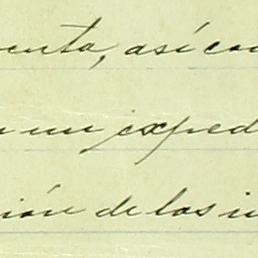 enta, así con
n un exped
ión de los in